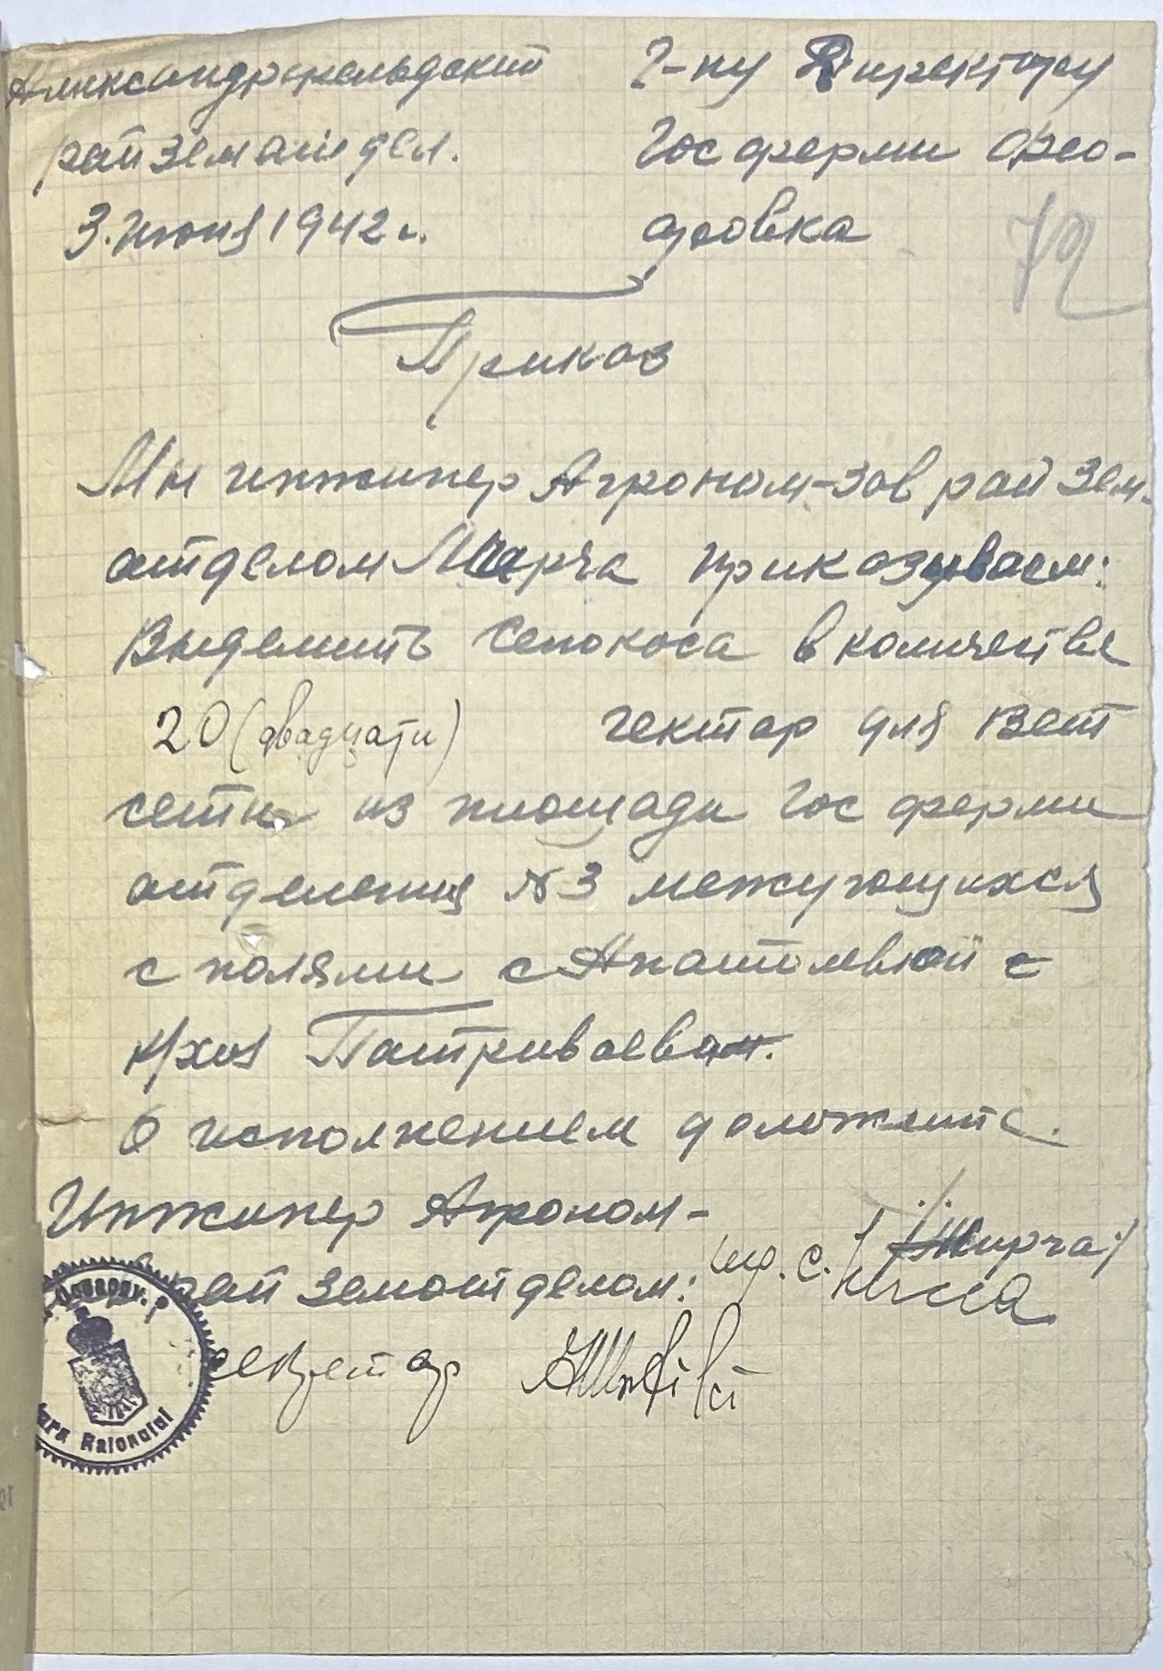 Александрфельдский
райзематдел.
3. Июня 1942 г.
Г-ну Директору
Гос ферми Фео-
доровка
72
Приказ
Мы инжинер Агроном-зав рай зем.
атделом Мирча приказываем:
Выделить сенокоса в количестве
20 (двадцати) гектар для вет
сети из площади Гос ферми
атделения №3 межующихся
с полями с
к/хоз
О исполнением доложите.
Инжинер Агроном-
рай земотделом: /Мирча/
секретар
Raional